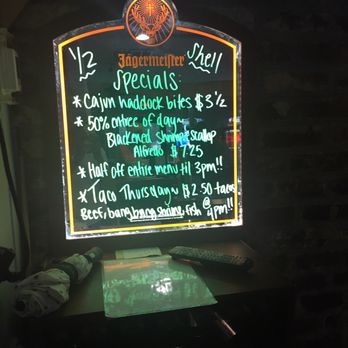 1/2 Shell
Jägermeister
Specials:
* Cajun haddock bites $3 1/2
* 50% entree of day~
Blackened Shrimp & Scallop
Alfredo $7.25
* Half off entire menu til 3pm!!
* Taco Thursday~ $2.50 tacos
Beef, bang bang shrimp, fish @ 4pm!!